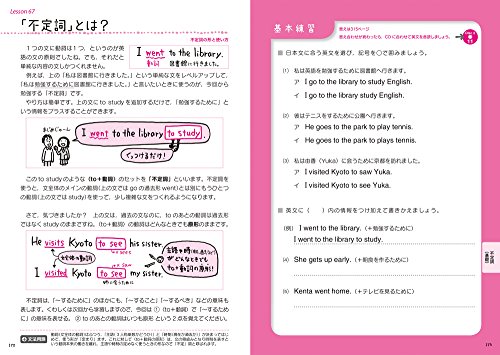 Lesson 67
「不定詞」とは?
不定詞の形と使い方
1つの文に動詞は1つ、というのが英
語の文の原則でしたね。でも、それだと
単純な内容の文しかつくれません。
I went to the library.
動詞 図書館に行きました。
例えば、上の「私は図書館に行きました。」という単純な文をレベルアップして、
「私は勉強するために図書館に行きました。」と言いたいときに使うのが、今回から勉
強する「不定詞」です。
やり方は簡単です。上の文に to study を追加するだけで、「勉強するために」と
いう情報をプラスすることができます。
I went to the library to study.
くっつけるだけ!
この to study のような〈to+動詞〉のセットを「不定詞」といいます。不定詞を
使うと、文全体のメインの動詞(上の文では go の過去形 went)とは別にもうひと
つの動詞(上の文では study)を使って、少し複雑な文をつくれるようになります。
さて、気づきましたか? 上の文は、過去の文なのに、to のあとの動詞は過去形
ではなく study のままですね。〈to+動詞〉の動詞は、どんなときでも原形のままです。
He visits Kyoto to see his sister.
文全体の動詞
I visited Kyoto to see my sister.
不定詞は、「~するために」のほかにも、「~すること」「~するべき」などの意味も
表します。くわしくは次回から学習しますので、今回は ① 〈to+動詞〉で「~するため
に」の意味を表せる、② to のあとの動詞はいつも原形 という2点を覚えてください。
文法用語
170
基本練習
答えは315ページ
答え合わせが終わったら、CDに合わせて英文を音読しましょう。
■ 日本文に合う英文を選び、記号を○で囲みましょう。
(1) 私は英語を勉強するために図書館へ行きます。
ア I go to the library to study English.
イ I go to the library study English.
(2) 彼はテニスをするために公園へ行きます。
ア He goes to the park to play tennis.
イ He goes to the park to plays tennis.
(3) 私は由香(Yuka)に会うために京都を訪れました。
ア I visited Kyoto to saw Yuka.
イ I visited Kyoto to see Yuka.
■ 英文に( )内の情報をつけ加えて書きかえましょう。
(例) I went to the library. (+勉強するために)
I went to the library to study.
(4) She gets up early. (+朝食を作るために)
(5) Kenta went home. (+テレビを見るために)
171